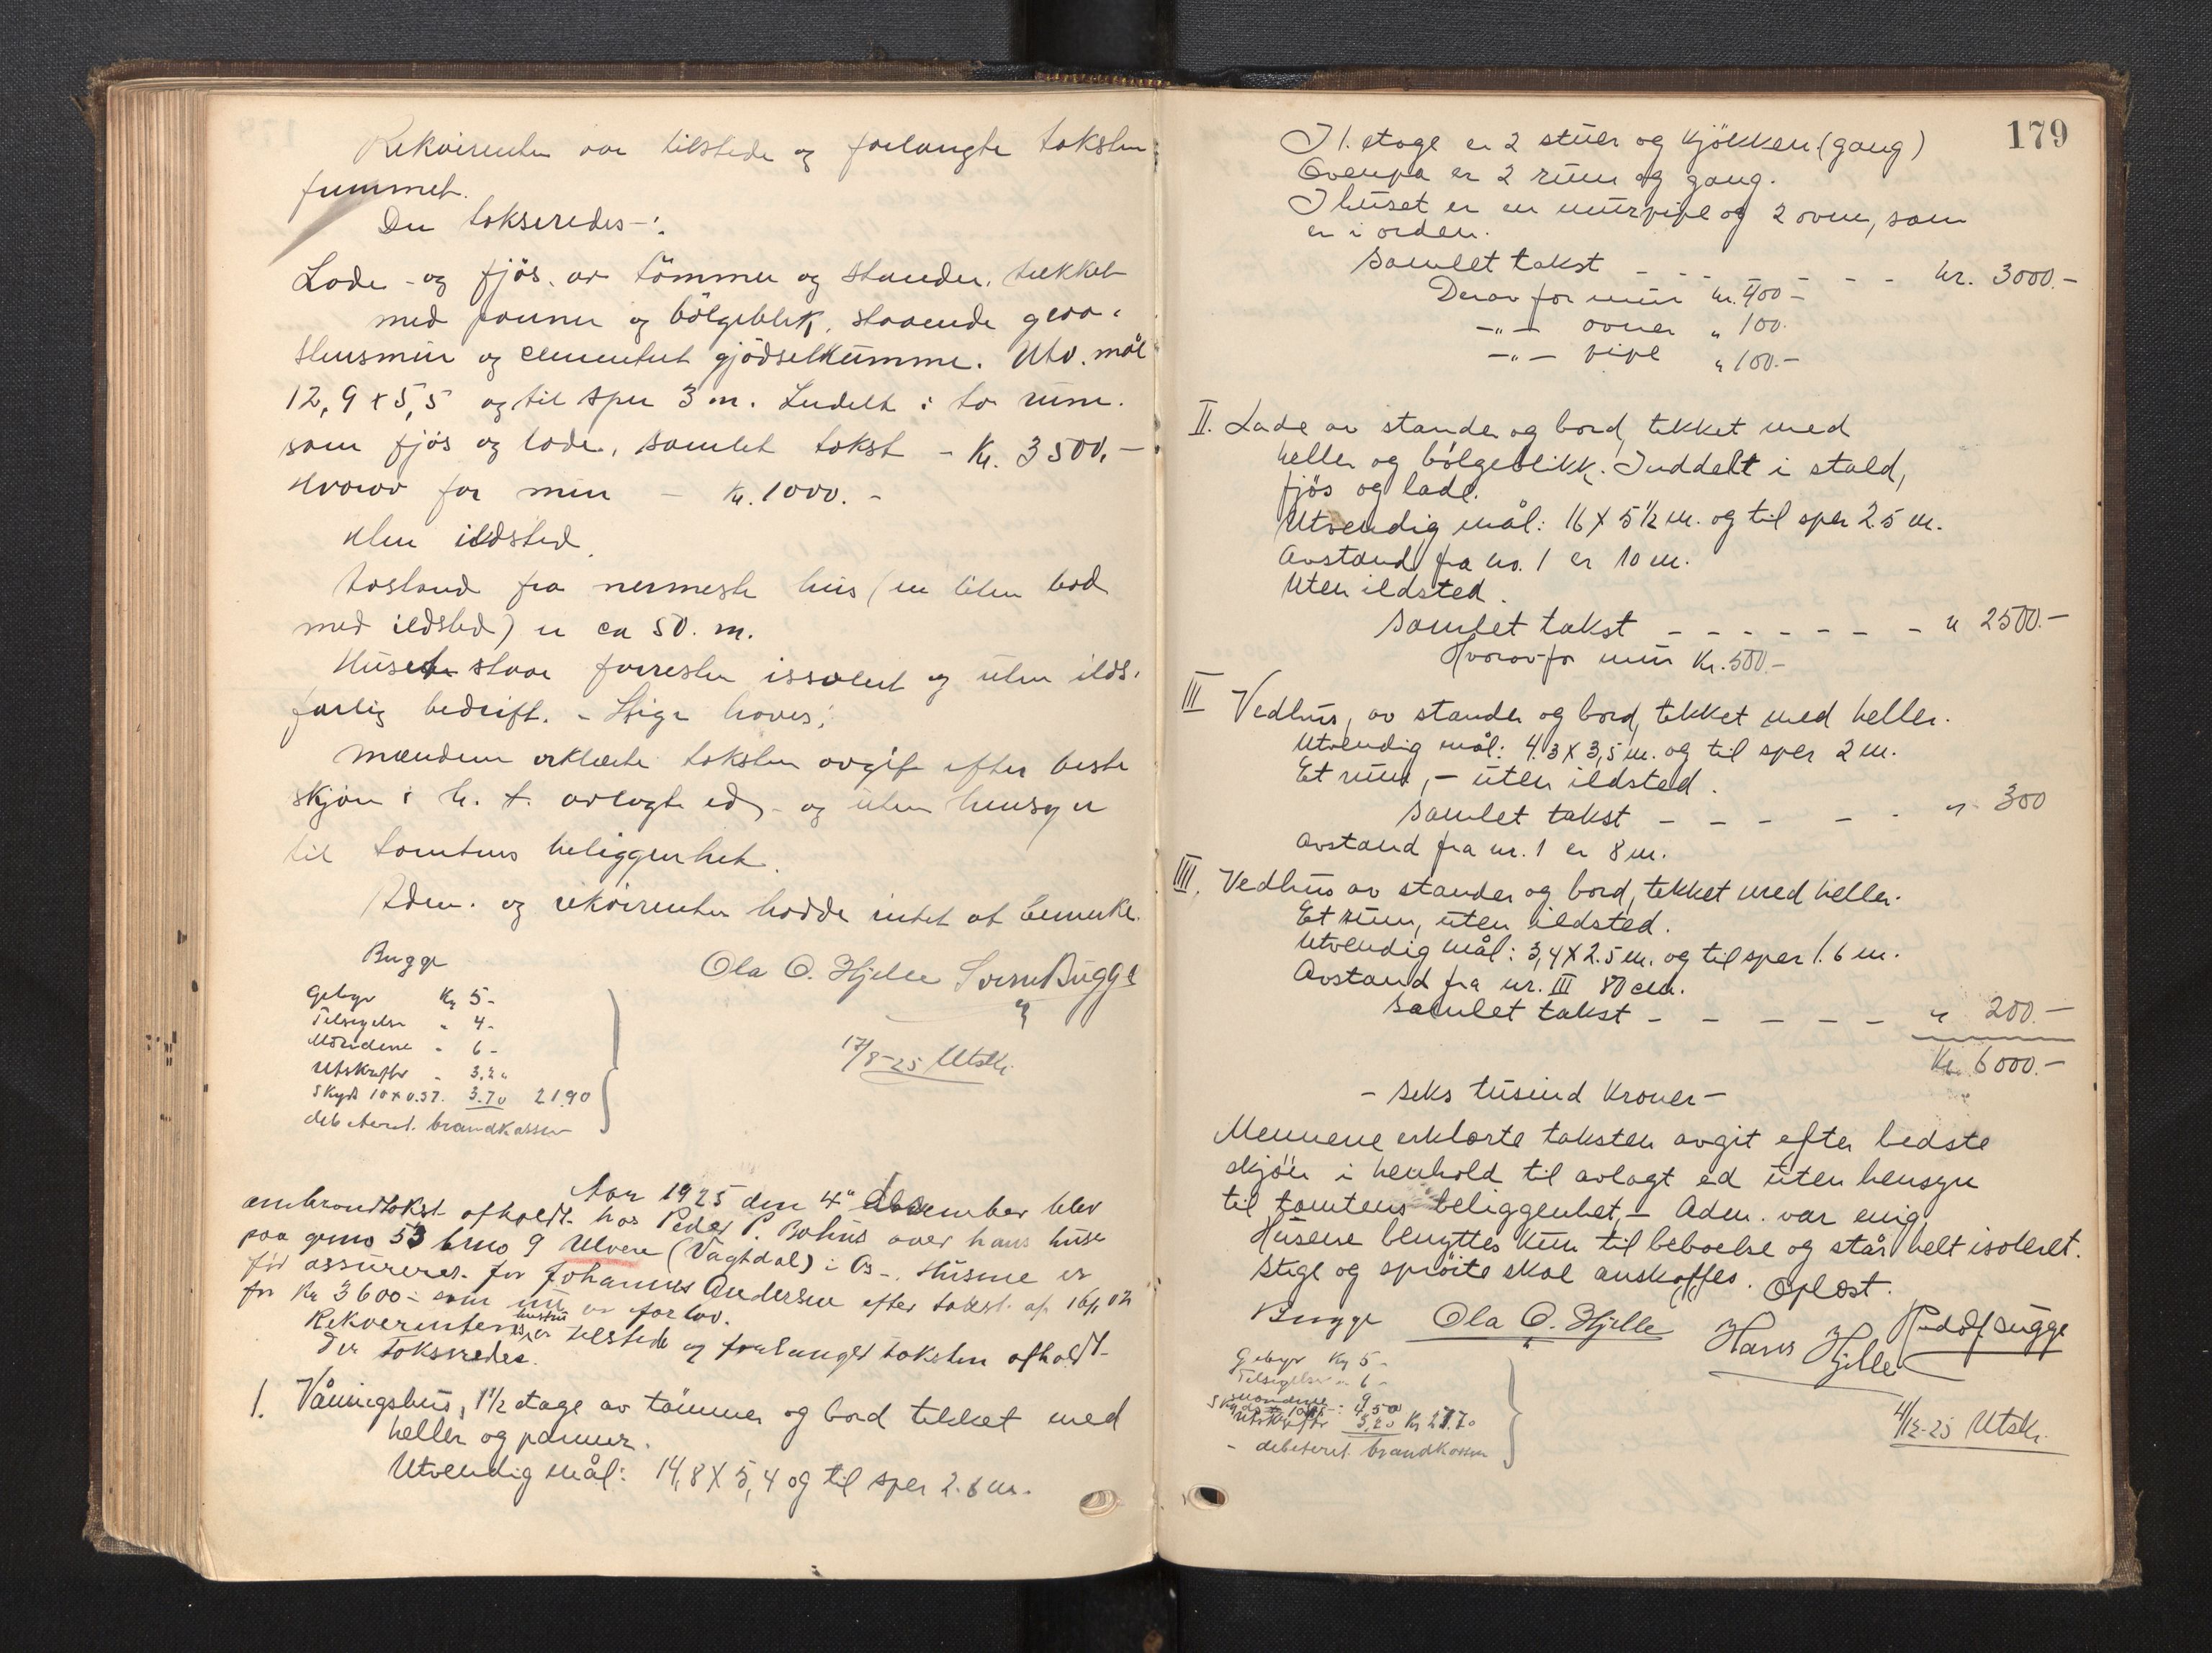 Rekvirenten var tilstede og forlangte taksten
fremmet.
Der takseredes -:
Lade - og fjös. av tömmer og stander. tækket
med panner og bölgeblik, staaende graa-
stensmur og cementert gjödselkumme. Utv. mål
12,9 x 5,5 og til sper 3 m. Inddelt i to rum.
som fjös og lade., samlet takst - Kr. 3500,-
Hvorav for mur - Kr. 1000.-
Uten ildsted.
Avstand fra nermeste hus (en liten bod
med ildsted) er ca 50. m.
Huset staar forresten issolert og uten ilds-
farlig bedrift. - Stige haves.
Mændene erklærte taksten avgit efter beste
skjön i h. t. avlagte ed, - og uten hensyn
til tomtens beliggenhet.
Adm. og rekvirenten hadde intet at bemerke.
Bugge
Ola O. Hjelle Sverre Bugge
Gebyr Kr 5-
Tilsigelse " 4-
Mændene " 6-
Utskrifter " 3,20
Skyds 10 x 0.37. 3.70 21.90
debiteret brandkassen
17/8-25 Utskr.
Aar 1925 den 4de december blev
ombrandtakst afholdt hos Peder P. Bahus over hans huse
paa grno 53 brno 9 Ulvene (Vågtdal) i Os -. Husene er
för assureret for Johannes Andersen efter takst af 16/1 02
for Kr 3600- som nu er for lav.
Rekverentens hustru var tilstede og forlanget taksten afholdt-
Der takseredes.
1. Våningshus, 1 1/2 etage av tömmer og bord tekket med
heller og panner.
Utvendig mål: 14,8 X 5,4 og til sper 2.6 m.
179
I 1. etage er 2 stuer og kjökken (gang)
Ovenpa er 2 rum og gang.
I huset er en murpipe og 2 ovne, som
er i orden.
Samlet takst - - - - - - - kr. 3000.-
Derav for mur kr. 400-
-"- ovner " 100.
-"- pipe " 100.-
II. Lade av stander og bord, tekket med
heller og bölgeblikk. Inddelt i stald,
fjös og lade.
Utvendig mål: 16 X 5 1/2 m. og til sper 2.5 m.
Avstand fra no. 1 er 10 m.
Uten ildsted.
Samlet takst - - - - - - - " 2500.-
Hvorav for mur Kr. 500.-
III Vedhus, av stander og bord, tekket med heller.
Utvendig mål: 4.3 X 3,5 m. og til sper 2 m.
Et rum, - uten ildsted.
Samlet takst - - - - - " 300
Avstand fra nr. 1 er 8 m.
IIII. Vedhus av stander og bord, tekket med heller.
Et rum, uten ildsted.
Utvendig mål: 3,4 X 2.5 m. og til sper 1.6 m.
Avstand fra nr. III 80 cm.
Samlet takst - - - - - " 200.-
Kr. 6000.-
- Seks tusind kroner -
Mennene erklærte taksten avgit efter bedste
skjön i henhold til avlagt ed uten hensyn
til tomtens beliggenhet, - Adm. var enig,
Husene benyttes kun til beboelse og står helt isoleret.
Stige og spröite skal anskaffes. Oplæst.
Bugge Ola O. Hjelle Hans Hjelle Rudolf Bugge
Gebyr Kr 5-
Tilsigelse " 6-
Mændene 9
Skyds 4,50
Utskrifter 3,20 Kr 27.70
- debiteret brandkassen
4/12-25 Utskr.